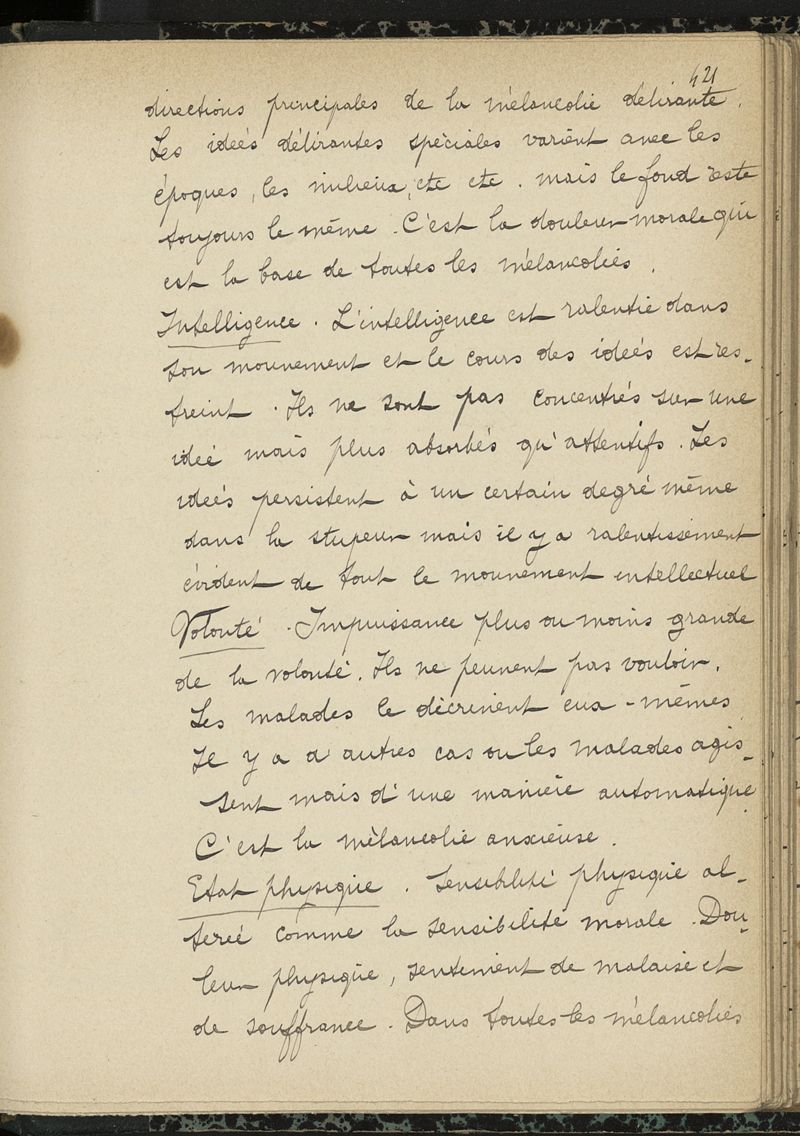 421
directions principales de la mélancolie délirante.
Les idées délirantes spéciales varient avec les
époques, les milieux, etc etc. mais le fond reste
toujours le même. C'est la douleur morale qui
est la base de toutes les mélancolies.
Intelligence. L'intelligence est ralentie dans
son mouvement et le cours des idées est res-
treint. Ils ne sont pas concentrés sur une
idée mais plus absorbés qu'attentifs. Les
idées persistent à un certain degré même
dans la stupeur mais il y a ralentissement
évident de tout le mouvement intellectuel
Volonté. Impuissance plus ou moins grande
de la volonté. Ils ne peuvent pas vouloir.
Les malades le décrivent eux-mêmes
Il y a d'autres cas ou les malades agis-
sent mais d'une manière automatique
C'est la mélancolie anxieuse.
Etat physique. Sensibilité physique al-
terée comme la sensibilité morale. Dou-
leur physique, sentiment de malaise et
de souffrance. Dans toutes les mélancolies